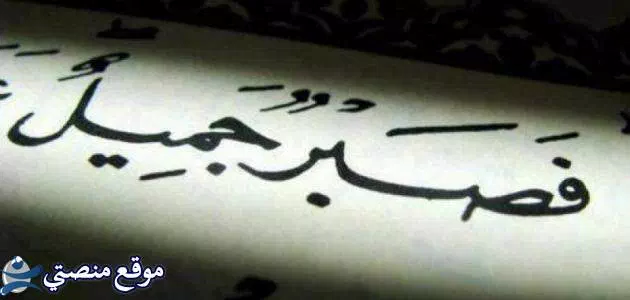 فَصَبْرٌ جَمِيلٌ
موقع منصتي